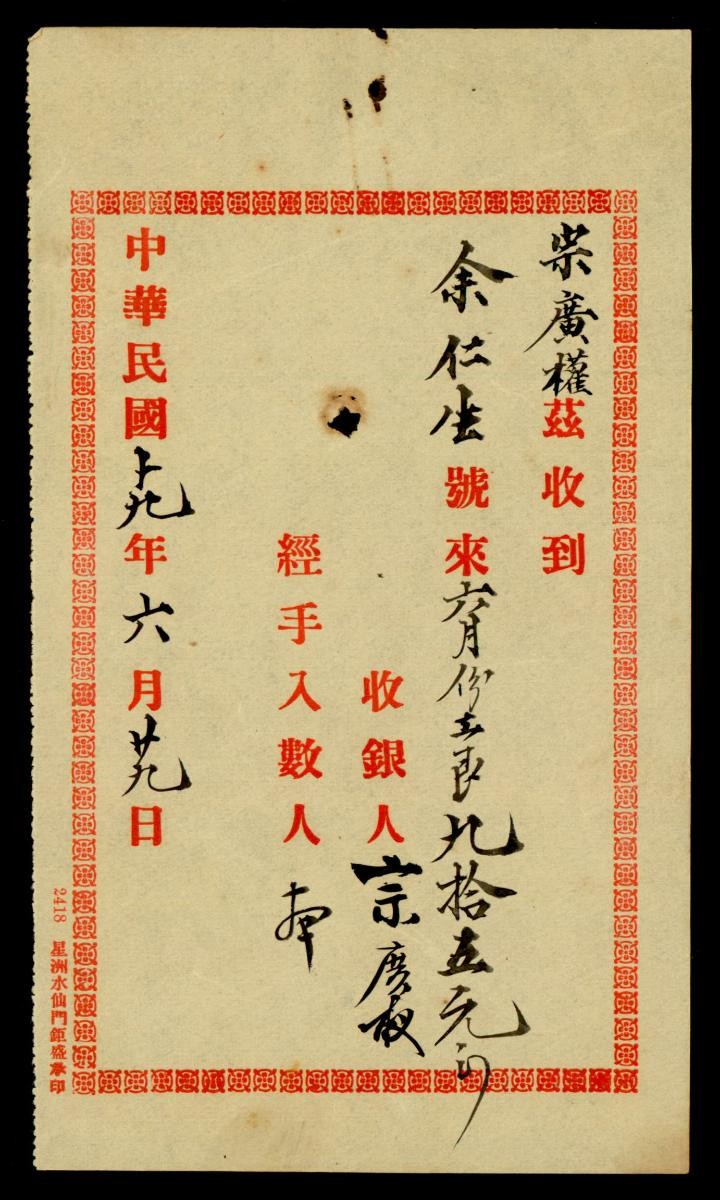 崇廣權茲收到
余仁生號來六月份工艮九拾五元正
收銀人宗廣权
經手入數人
中華民國十九年六月廿九日
2418 星洲水仙門鉅盛承印